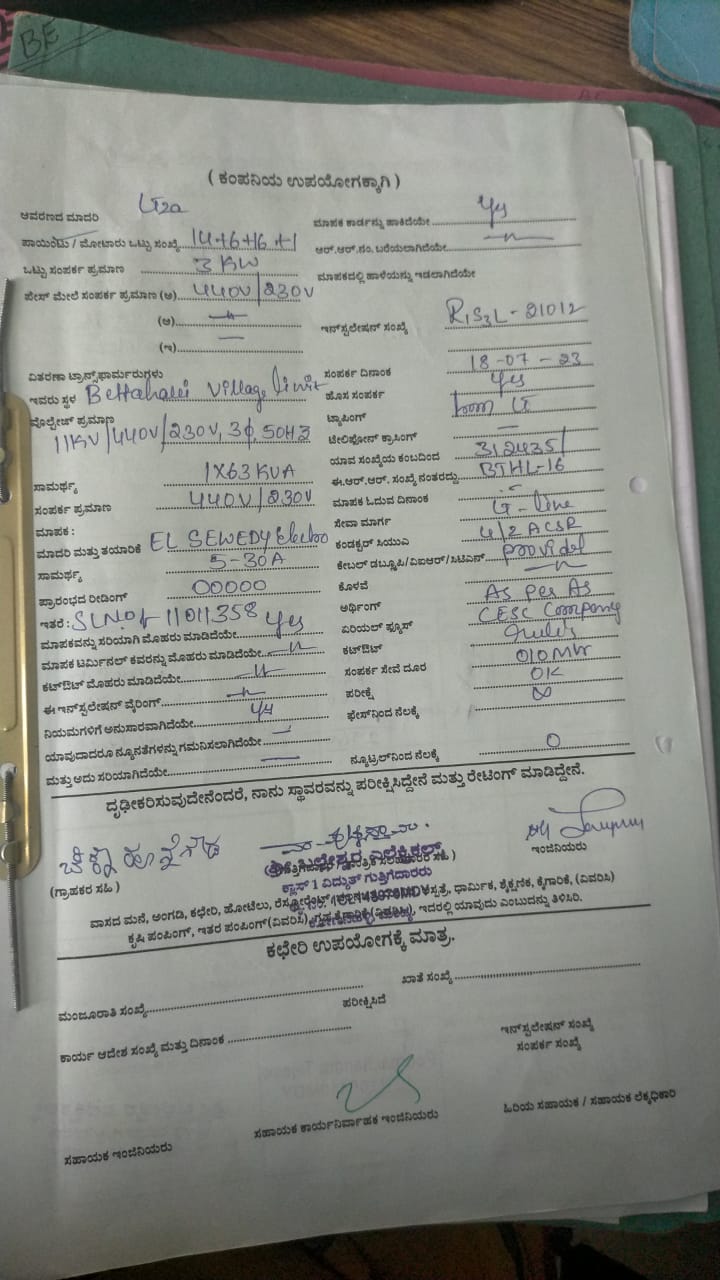 BE
( ಕಂಪನಿಯ ಉಪಯೋಗಕ್ಕಾಗಿ )
ಆವರಣದ ಮಾದರಿ LT2a
ಮಾಪಕ ಕಾರ್ಡನ್ನು ಹಾಕಿದೆಯೇ Yes
ಪಾಯಿಂಟು / ಮೋಟಾರು ಒಟ್ಟು ಸಂಖ್ಯೆ 14+6+16+1
ಆರ್.ಆರ್.ನಂ. ಬರೆಯಲಾಗಿದೆಯೇ —〃—
ಒಟ್ಟು ಸಂಪರ್ಕ ಪ್ರಮಾಣ 3 KW
ಮಾಪಕದಲ್ಲಿ ಹಾಳೆಯನ್ನು ಇಡಲಾಗಿದೆಯೇ
ಪೇಸ್ ಮೇಲೆ ಸಂಪರ್ಕ ಪ್ರಮಾಣ (ಅ) 440V/230V
(ಆ) —〃—
ಇನ್‌ಸ್ಟಲೇಷನ್ ಸಂಖ್ಯೆ R1S3L-21012
(ಇ) —
ವಿತರಣಾ ಟ್ರಾನ್ಸ್‌ಫಾರ್ಮರುಗಳು
ಸಂಪರ್ಕ ದಿನಾಂಕ 18-07-23
ಇವರು ಸ್ಥಳ Bettahalli Village limit
ಹೊಸ ಸಂಪರ್ಕ Yes
ವೋಲ್ಟೇಜ್ ಪ್ರಮಾಣ
ಟ್ಯಾಪಿಂಗ್ from LT
11KV/440V/230V, 3ϕ, 50HZ
ಟೆಲಿಫೋನ್ ಕ್ರಾಸಿಂಗ್ —
ಯಾವ ಸಂಖ್ಯೆಯ ಕಂಬದಿಂದ 312435/
ಸಾಮರ್ಥ್ಯ 1X63 KVA
ಈ.ಆರ್.ಆರ್. ಸಂಖ್ಯೆ ನಂತರದ್ದು BTHL-16
ಸಂಪರ್ಕ ಪ್ರಮಾಣ 440V/230V
ಮಾಪಕ ಓದುವ ದಿನಾಂಕ
ಮಾಪಕ :
ಸೇವಾ ಮಾರ್ಗ LT-line
ಮಾದರಿ ಮತ್ತು ತಯಾರಿಕೆ EL SEWEDY Electro
ಕಂಡಕ್ಟರ್ ಸಿಯುಎ 4/2 ACSR
ಸಾಮರ್ಥ್ಯ 5-30A
ಕೇಬಲ್ ಡಬ್ಲ್ಯೂಪಿ/ವಿಐಆರ್/ಸಿಟಿಎಸ್ provided
ಪ್ರಾರಂಭದ ರೀಡಿಂಗ್ 00000
ಕೊಳವೆ —〃—
ಇತರೆ : SLNO: 11011358
ಅರ್ಥಿಂಗ್ As per As
ಮಾಪಕವನ್ನು ಸರಿಯಾಗಿ ಮೊಹರು ಮಾಡಿದೆಯೇ Yes
ಏರಿಯಲ್ ಫ್ಯೂಸ್ CESC Company
ಮಾಪಕ ಟರ್ಮಿನಲ್ ಕವರನ್ನು ಮೊಹರು ಮಾಡಿದೆಯೇ —〃—
ಕಟ್‌ಔಟ್ Rules
ಕಟ್‌ಔಟ್ ಮೊಹರು ಮಾಡಿದೆಯೇ —〃—
ಸಂಪರ್ಕ ಸೇವೆ ದೂರ 010 Mtr
ಈ ಇನ್‌ಸ್ಟಲೇಷನ್ ವೈರಿಂಗ್ —〃—
ಪರೀಕ್ಷೆ OK
ನಿಯಮಗಳಿಗೆ ಅನುಸಾರವಾಗಿದೆಯೇ Yes
ಫೇಸ್‌ನಿಂದ ನೆಲಕ್ಕೆ ∞
ಯಾವುದಾದರೂ ನ್ಯೂನತೆಗಳನ್ನು ಗಮನಿಸಲಾಗಿದೆಯೇ —
ಮತ್ತು ಅದು ಸರಿಯಾಗಿದೆಯೇ —
ನ್ಯೂಟ್ರಲ್‌ನಿಂದ ನೆಲಕ್ಕೆ 0
ದೃಢೀಕರಿಸುವುದೇನೆಂದರೆ, ನಾನು ಸ್ಥಾವರವನ್ನು ಪರೀಕ್ಷಿಸಿದ್ದೇನೆ ಮತ್ತು ರೇಟಿಂಗ್ ಮಾಡಿದ್ದೇನೆ.
(ಗ್ರಾಹಕರ ಸಹಿ )
ಇಂಜಿನಿಯರು
ಕ್ಲಾಸ್ 1 ವಿದ್ಯುತ್ ಗುತ್ತಿಗೆದಾರರು
ವಾಸದ ಮನೆ, ಅಂಗಡಿ, ಕಛೇರಿ, ಹೋಟೆಲು, ಆಸ್ಪತ್ರೆ, ಧಾರ್ಮಿಕ, ಶೈಕ್ಷಣಿಕ, ಕೈಗಾರಿಕೆ, (ವಿವರಿಸಿ)
ಕೃಷಿ ಪಂಪಿಂಗ್, ಇತರ ಪಂಪಿಂಗ್(ವಿವರಿಸಿ), ಗೃಹ ಕೈಗಾರಿಕೆ(ವಿವರಿಸಿ), ಇದರಲ್ಲಿ ಯಾವುದು ಎಂಬುದನ್ನು ತಿಳಿಸಿರಿ.
ಕಛೇರಿ ಉಪಯೋಗಕ್ಕೆ ಮಾತ್ರ.
ಮಂಜೂರಾತಿ ಸಂಖ್ಯೆ
ಖಾತೆ ಸಂಖ್ಯೆ
ಪರೀಕ್ಷಿಸಿದೆ
ಕಾರ್ಯ ಆದೇಶ ಸಂಖ್ಯೆ ಮತ್ತು ದಿನಾಂಕ
ಇನ್‌ಸ್ಟಲೇಷನ್ ಸಂಖ್ಯೆ
ಸಂಪರ್ಕ ಸಂಖ್ಯೆ
ಸಹಾಯಕ ಇಂಜಿನಿಯರು
ಸಹಾಯಕ ಕಾರ್ಯನಿರ್ವಾಹಕ ಇಂಜಿನಿಯರು
ಹಿರಿಯ ಸಹಾಯಕ / ಸಹಾಯಕ ಲೆಕ್ಕಧಿಕಾರಿ